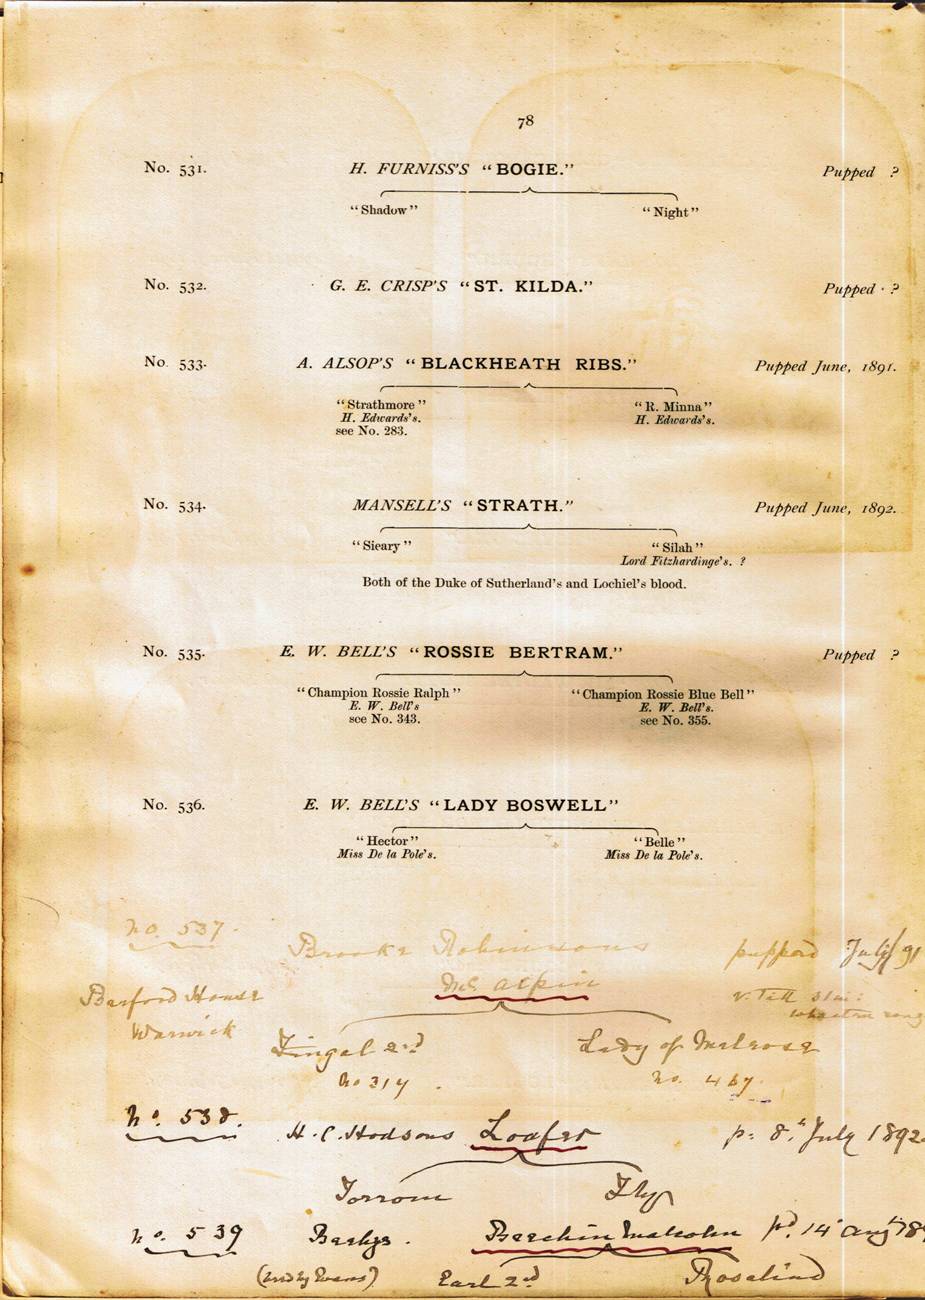 78
No. 531. H. FURNISS'S "BOGIE." Pupped ?
"Shadow" "Night"
No. 532. G. E. CRISP'S "ST. KILDA." Pupped ?
No. 533. A. ALSOP'S "BLACKHEATH RIBS." Pupped June, 1891.
"Strathmore" "R. Minna"
H. Edwards's. H. Edwards's.
see No. 283.
No. 534. MANSELL'S "STRATH." Pupped June, 1892.
"Sieary" "Silah"
Lord Fitzhardinge's. ?
Both of the Duke of Sutherland's and Lochiel's blood.
No. 535. E. W. BELL'S "ROSSIE BERTRAM." Pupped ?
"Champion Rossie Ralph" "Champion Rossie Blue Bell"
E. W. Bell's E. W. Bell's.
see No. 343. see No. 355.
No. 536. E. W. BELL'S "LADY BOSWELL"
"Hector" "Belle"
Miss De la Pole's. Miss De la Pole's.
No. 537. Brooke Robinsons pupped July/91
McAlpin
Barford House
Warwick
Fingal 2nd Lady of Melrose
No 314. No. 467.
No. 538. H. C. Hodsons Loafer p. 8th July 1892
Torrom Fly
No. 539 pd. 14 Aug
Earl 2nd Rosalind